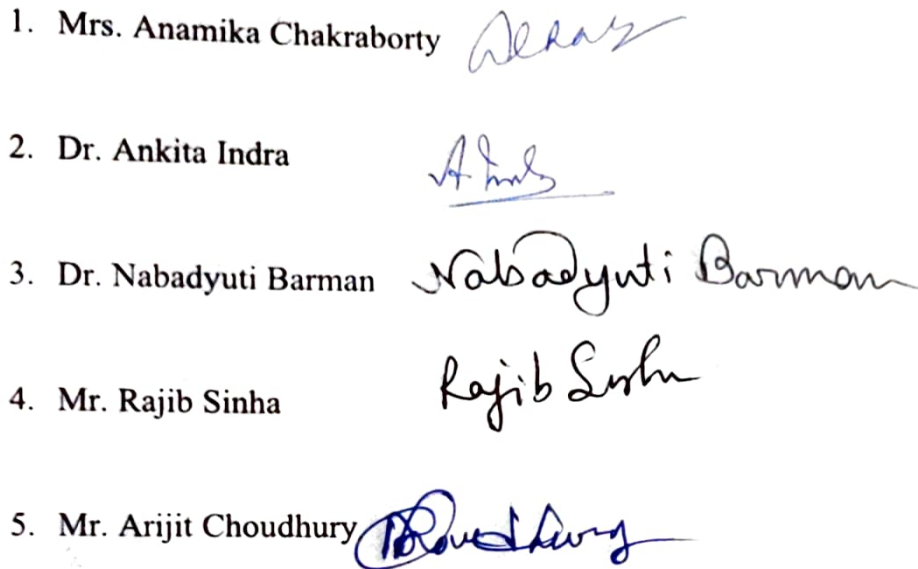 1. Mrs. Anamika Chakraborty
2. Dr. Ankita Indra
3. Dr. Nabadyuti Barman Nabadyuti Barman
4. Mr. Rajib Sinha Rajib Sinha
5. Mr. Arijit Choudhury